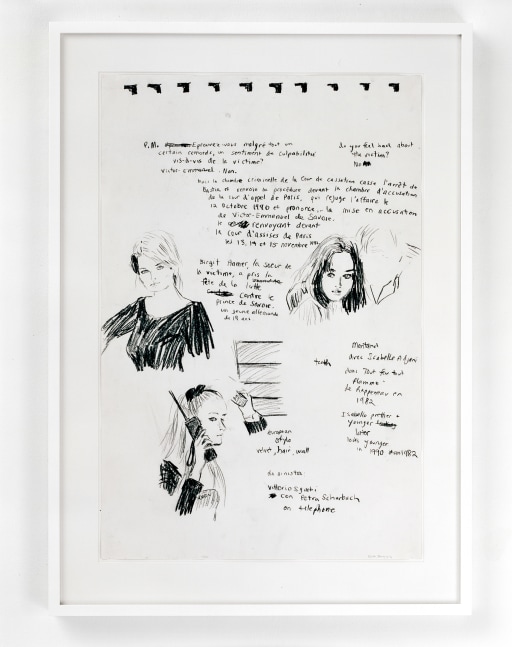 P.M. Eprouvez-vous malgré tout un
certain remords, un sentiment de culpabilité
vis-à-vis de la victime?
Victor-Emmanuel. Non.
do you feel back about
the victim?
No
la chambre criminelle de la Cour de cassation casse l'arrêt de
Bastia et renvoie la procédure devant la chambre d'accusation
de la cour d'appel de Paris, qui rejuge l'affaire le
12 octobre 1990 et prononce... la mise en accusation
de Victor-Emmanuel de Savoie.
le renvoyant devant
la cour d'assises de Paris
les 13, 14 et 15 novembre
Birgit Hamer, la soeur de
la victime, a pris la
tête de la lutte
contre le
prince de Savoie.
un jeune allemand
de 19 ans
teeth
Montand
avec Isabelle Adjani
dans Tout feu tout
flamme
de Rappeneau en
1982
Isabelle prettier +
younger
later
looks younger
in 1990 than 1982
european
style
velvet, hair, wall
da sinistra:
Vittorio
con Petra
on telephone